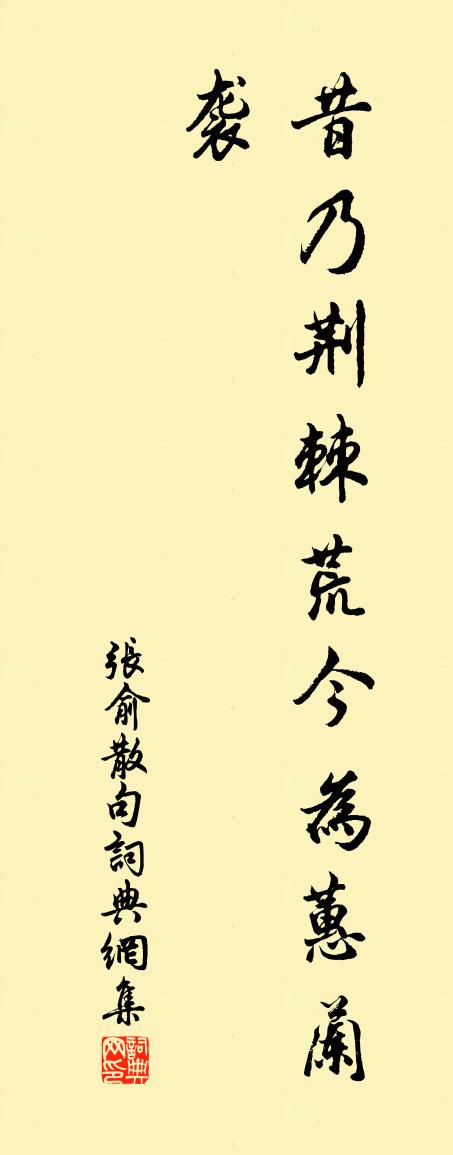 昔乃荆棘荒今為蕙蘭
袭
張俞散句詞典網集
詞典网印